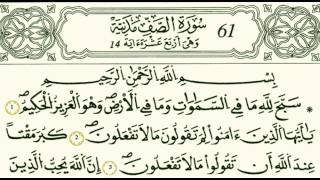 سُورَةُ الصَّفِّ مَدَنِيَّة 61
وَهِيَ أَرْبَعَ عَشْرَةَ ءَايَةً 14
بِسْمِ اللَّهِ الرَّحْمَٰنِ الرَّحِيمِ
سَبَّحَ لِلَّهِ مَا فِي السَّمَاوَاتِ وَمَا فِي الْأَرْضِ وَهُوَ الْعَزِيزُ الْحَكِيمُ 1
يَا أَيُّهَا الَّذِينَ ءَامَنُوا لِمَ تَقُولُونَ مَا لَا تَفْعَلُونَ 2 كَبُرَ مَقْتًا
عِندَ اللَّهِ أَن تَقُولُوا مَا لَا تَفْعَلُونَ 3 إِنَّ اللَّهَ يُحِبُّ الَّذِينَ